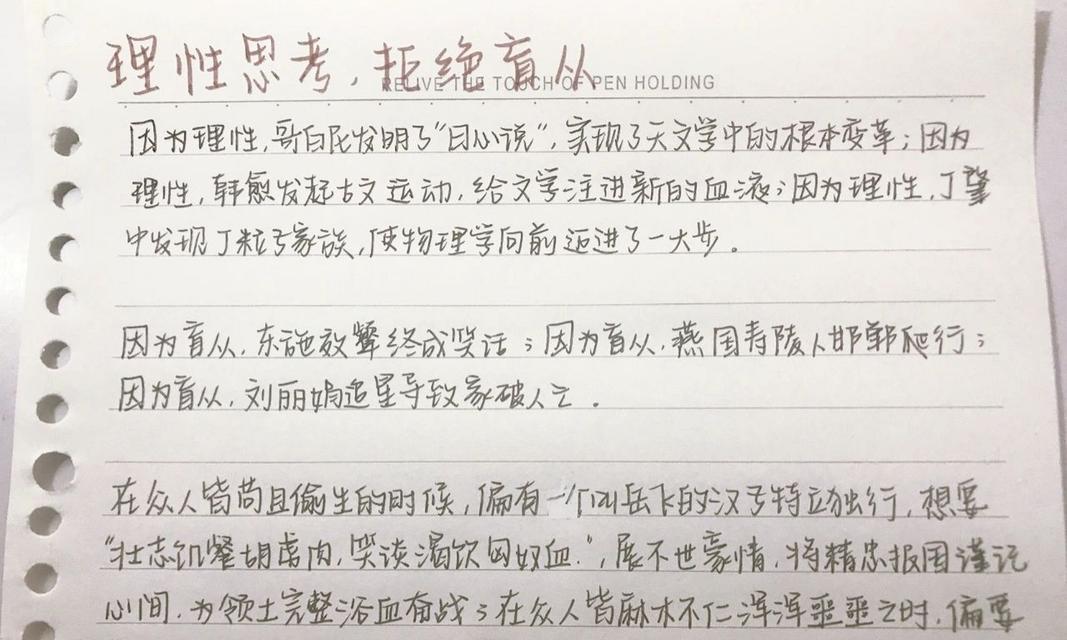 理性思考，拒绝盲从
RELIVE THE TOUCH OF PEN HOLDING
因为理性，哥白尼发明了“日心说”，实现了天文学中的根本变革；因为
理性，韩愈发起古文运动，给文学注进新的血液；因为理性，丁肇
中发现J粒子家族，使物理学向前迈进了一大步。
因为盲从，东施效颦终成笑话；因为盲从，燕国寿陵人邯郸爬行；
因为盲从，刘丽娟追星导致家破人亡。
在众人皆苟且偷生的时候，偏有一个叫岳飞的汉子特立独行，想要
“壮志饥餐胡虏肉，笑谈渴饮匈奴血”，展不世豪情，将精忠报国谨记
心间，为领土完整浴血奋战；在众人皆麻木不仁浑浑噩噩之时，偏要